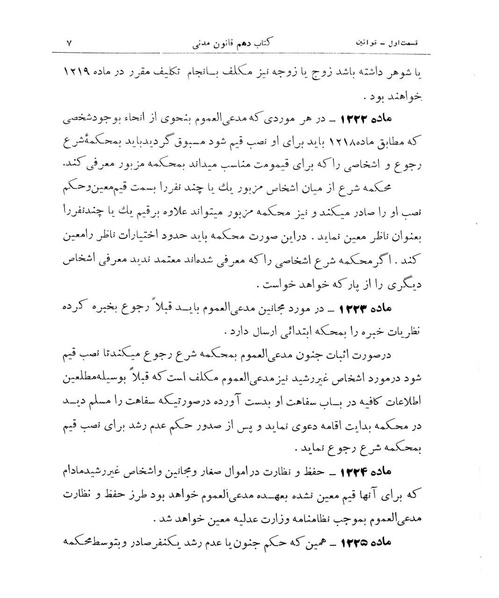 قسمت اول – قوانین
کتاب دهم قانون مدنی
۷
یا شوهر داشته باشد زوج یا زوجه نیز مکلف بانجام تکلیف مقرر در ماده ۱۲۱۹
خواهند بود .
ماده ۱۲۲۲ – در هر موردی که مدعی‌العموم بنحوی از انحاء بوجود شخصی
که مطابق ماده ۱۲۱۸ باید برای او نصب قیم شود مسبوق گردید باید بمحکمهٔ شرع
رجوع و اشخاصی را که برای قیمومت مناسب میداند بمحکمه مزبور معرفی کند.
محکمه شرع از میان اشخاص مزبور یك یا چند نفر را بسمت قیم معین و حکم
نصب او را صادر میکند و نیز محکمه مزبور میتواند علاوه بر قیم یك یا چند نفر را
بعنوان ناظر معین نماید . در این صورت محکمه باید حدود اختیارات ناظر را معین
کند . اگر محکمه شرع اشخاصی را که معرفی شده‌اند معتمد ندید معرفی اشخاص
دیگری را از پارکه خواهد خواست .
ماده ۱۲۲۳ – در مورد مجانین مدعی‌العموم باید قبلاً رجوع بخبره کرده
نظریات خبره را بمحکه ابتدائی ارسال دارد .
در صورت اثبات جنون مدعی‌العموم بمحکمه شرع رجوع میکند تا نصب قیم
شود در مورد اشخاص غیر رشید نیز مدعی‌العموم مکلف است که قبلاً بوسیله مطلعین
اطلاعات کافیه در باب سفاهت او بدست آورده در صورتیکه سفاهت را مسلم دید
در محکمه بدایت اقامه دعوی نماید و پس از صدور حکم عدم رشد برای نصب قیم
بمحکمه شرع رجوع نماید .
ماده ۱۲۲۴ – حفظ و نظارت در اموال صغار و مجانین و اشخاص غیر رشید مادام
که برای آنها قیم معین نشده بعهده مدعی‌العموم خواهد بود طرز حفظ و نظارت
مدعی‌العموم بموجب نظامنامه وزارت عدلیه معین خواهد شد .
ماده ۱۲۲۵ – همین که حکم جنون یا عدم رشد یکنفر صادر و بتوسط محکمه